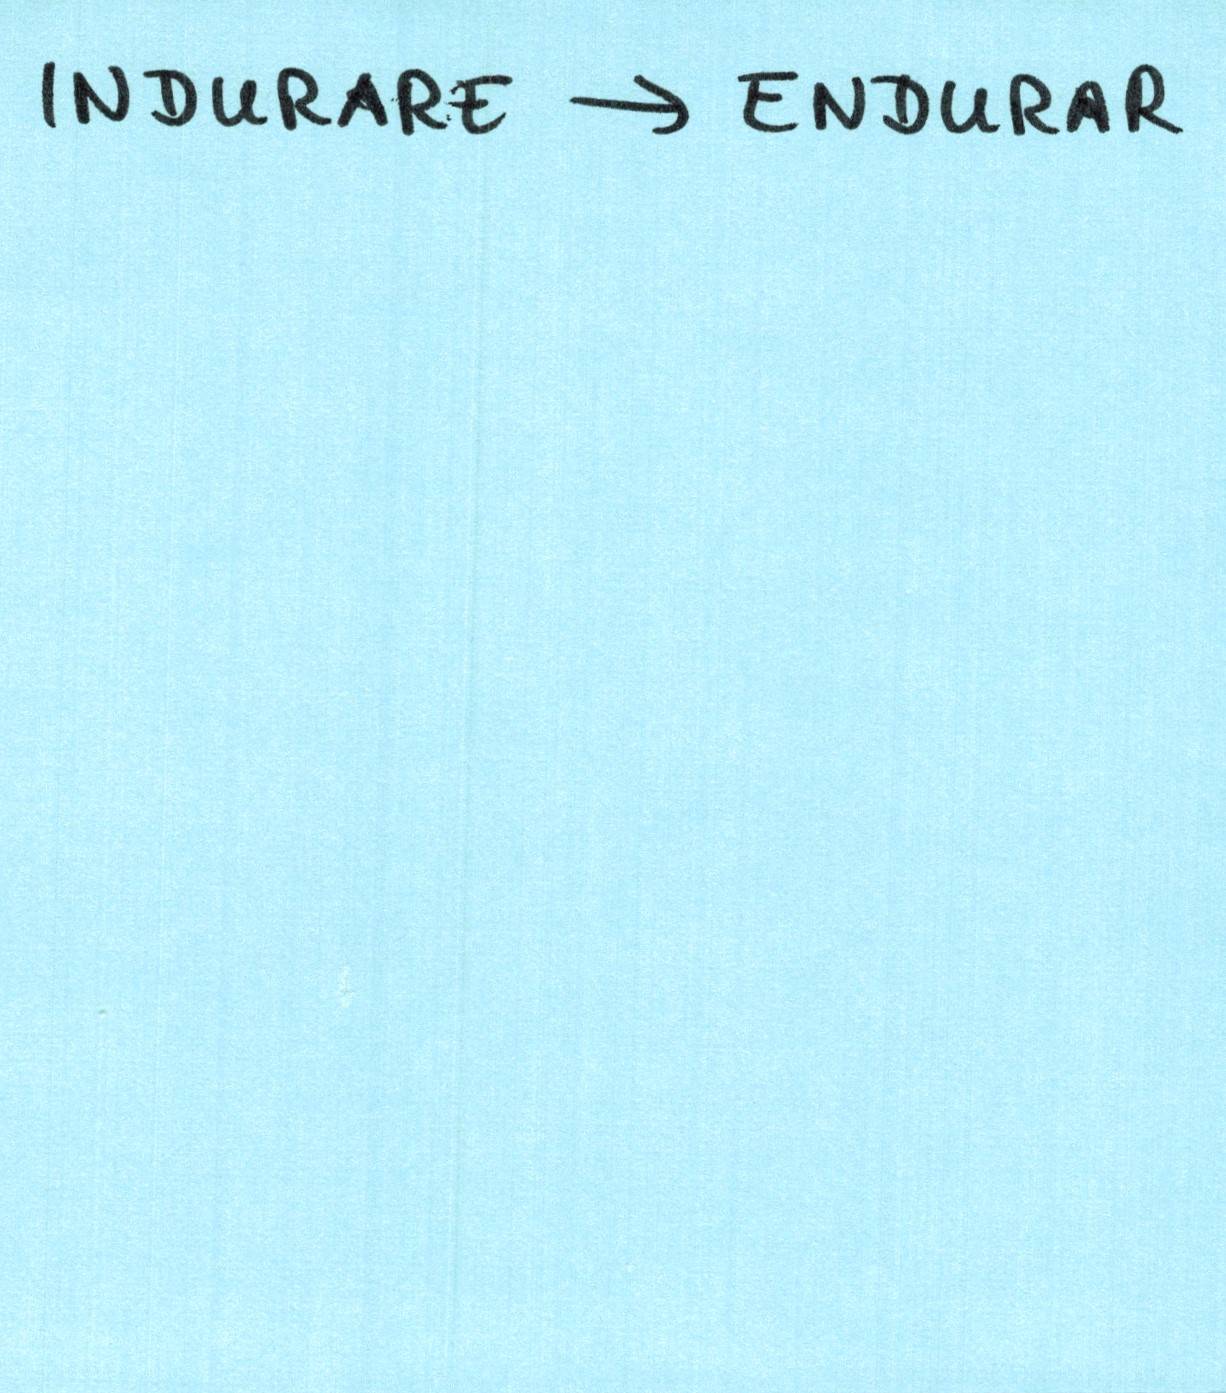 INDURARE → ENDURAR